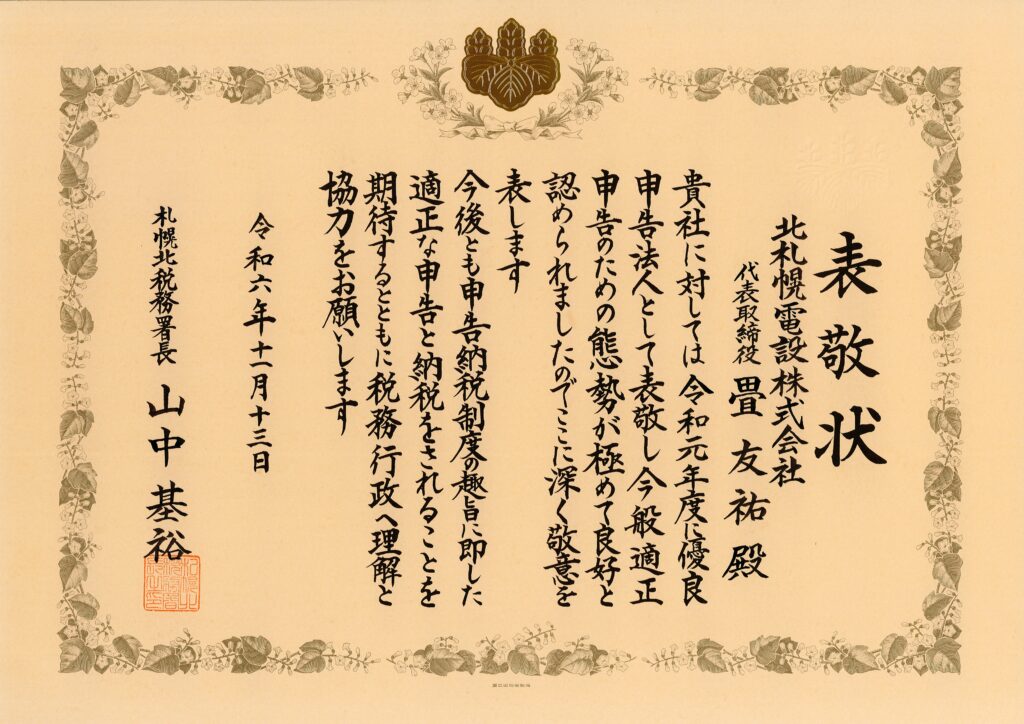 表敬状
北札幌電設株式会社
代表取締役 畳友祐殿
貴社に対しては令和元年度に優良
申告法人として表敬し今般適正
申告のための態勢が極めて良好と
認められましたのでここに深く敬意を
表します
今後とも申告納税制度の趣旨に即した
適正な申告と納税をされることを
期待するとともに税務行政へ理解と
協力をお願いします
令和六年十一月十三日
札幌北税務署長 山中基裕